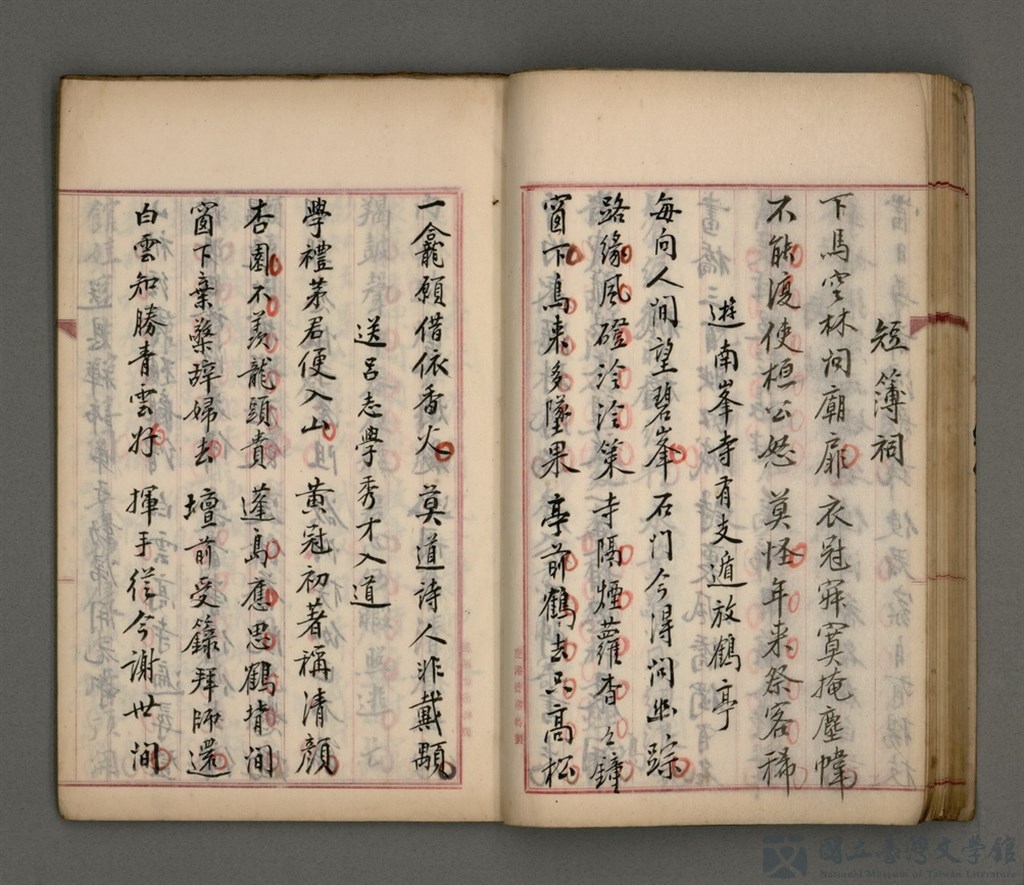 短簿祠
下馬空林問廟扉 衣冠寂寞掩塵幃
不能復使桓公怒 莫怪年來祭客稀
遊南峯寺有支遁放鶴亭
每向人間望碧峯 石門今得問幽踪
路緣風磴泠泠策 寺隔煙蘿杳々鐘
窗下鳥來多墜果 亭前鶴去只高松
一龕願借依香火 莫道詩人非戴顒
送呂志學秀才入道
學禮茅君便入山 黃冠初著稱清顏
杏園不羨龍頭貴 蓬島應思鶴背間
窗下棄藥辭婦去 壇前受籙拜師還
白雲知勝青雲好 揮手從今謝世間
國立臺灣文學館
National Museum of Taiwan Literature